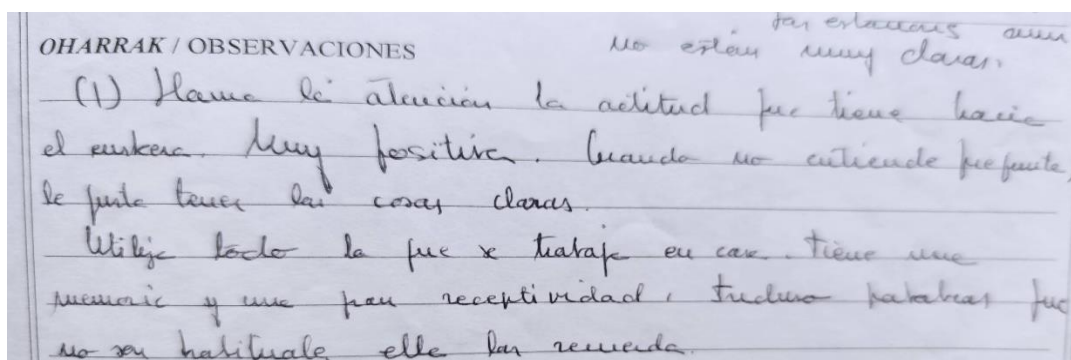 las estaciones aun
no están muy claras.
OHARRAK / OBSERVACIONES
(1) Llama la atención la actitud que tiene hacia
el euskera. Muy positiva. Cuando no entiende pregunta,
le gusta tener las cosas claras.
Utiliza todo lo que se trabaja en casa. Tiene una
memoria y una gran receptividad, incluso palabras que
no son habituales ella las recuerda.